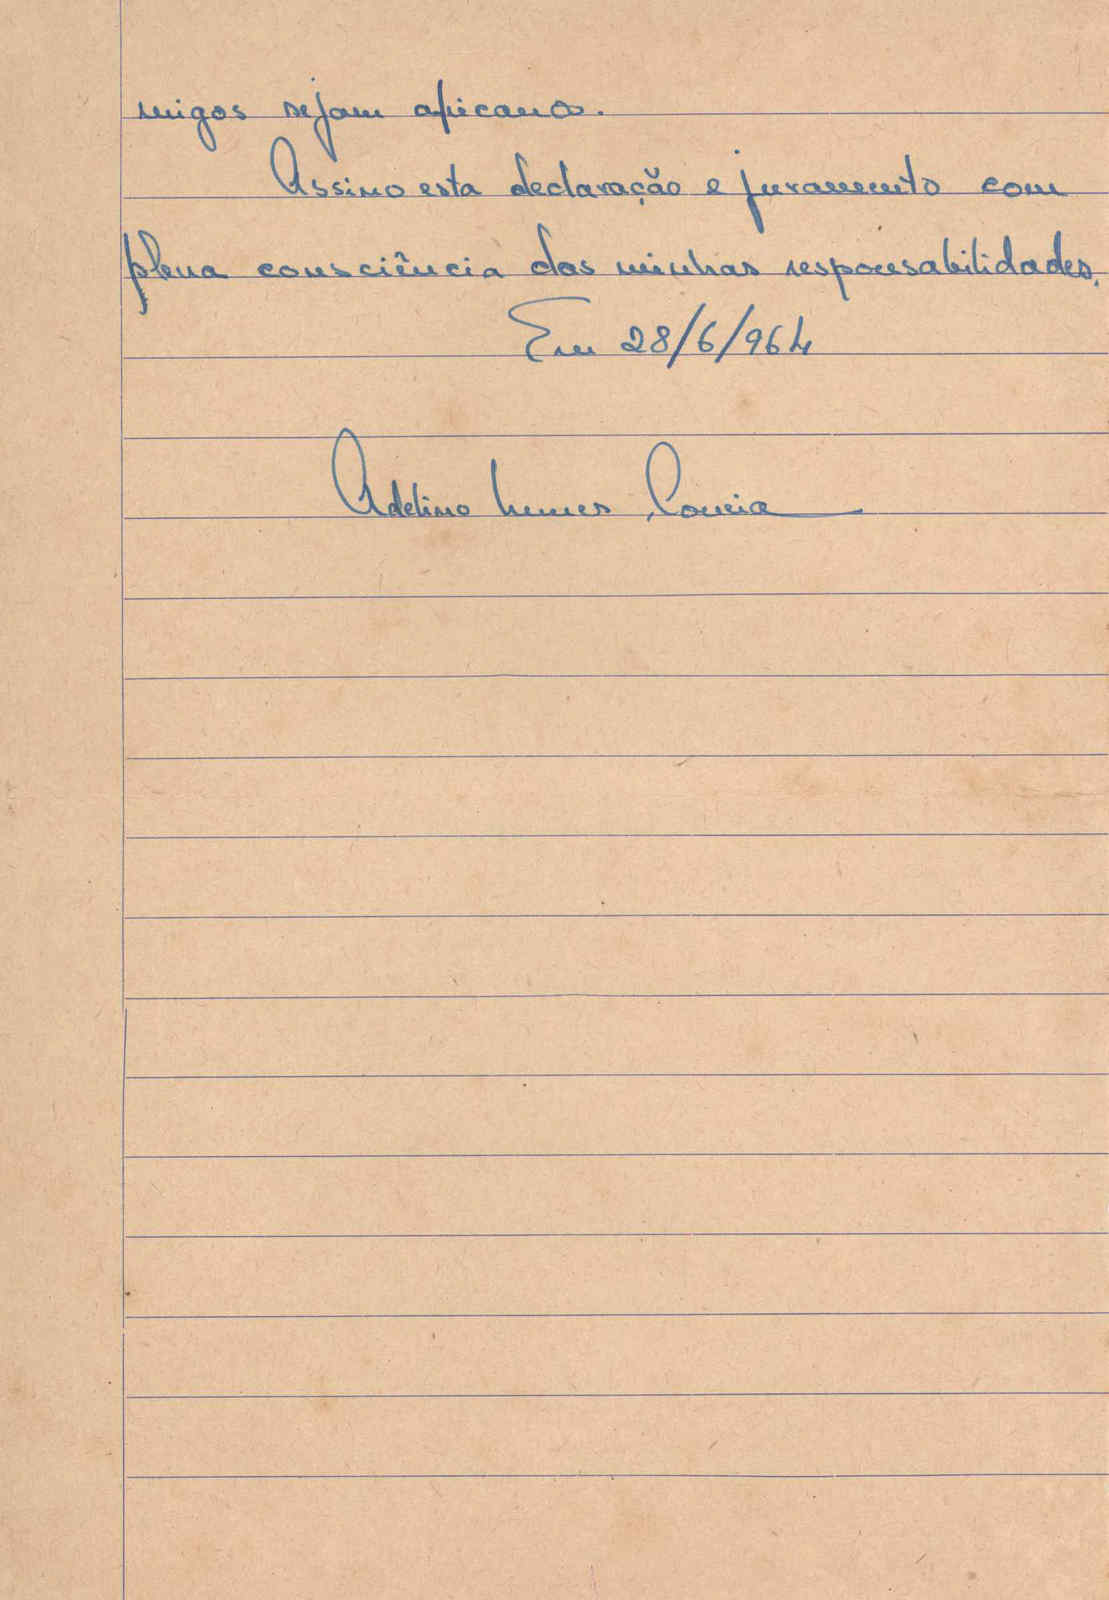 migos sejam africanos.
Assino esta declaração e juramento com
plena consciência das minhas responsabilidades.
Em 28/6/964
Adelino Nunes Correia